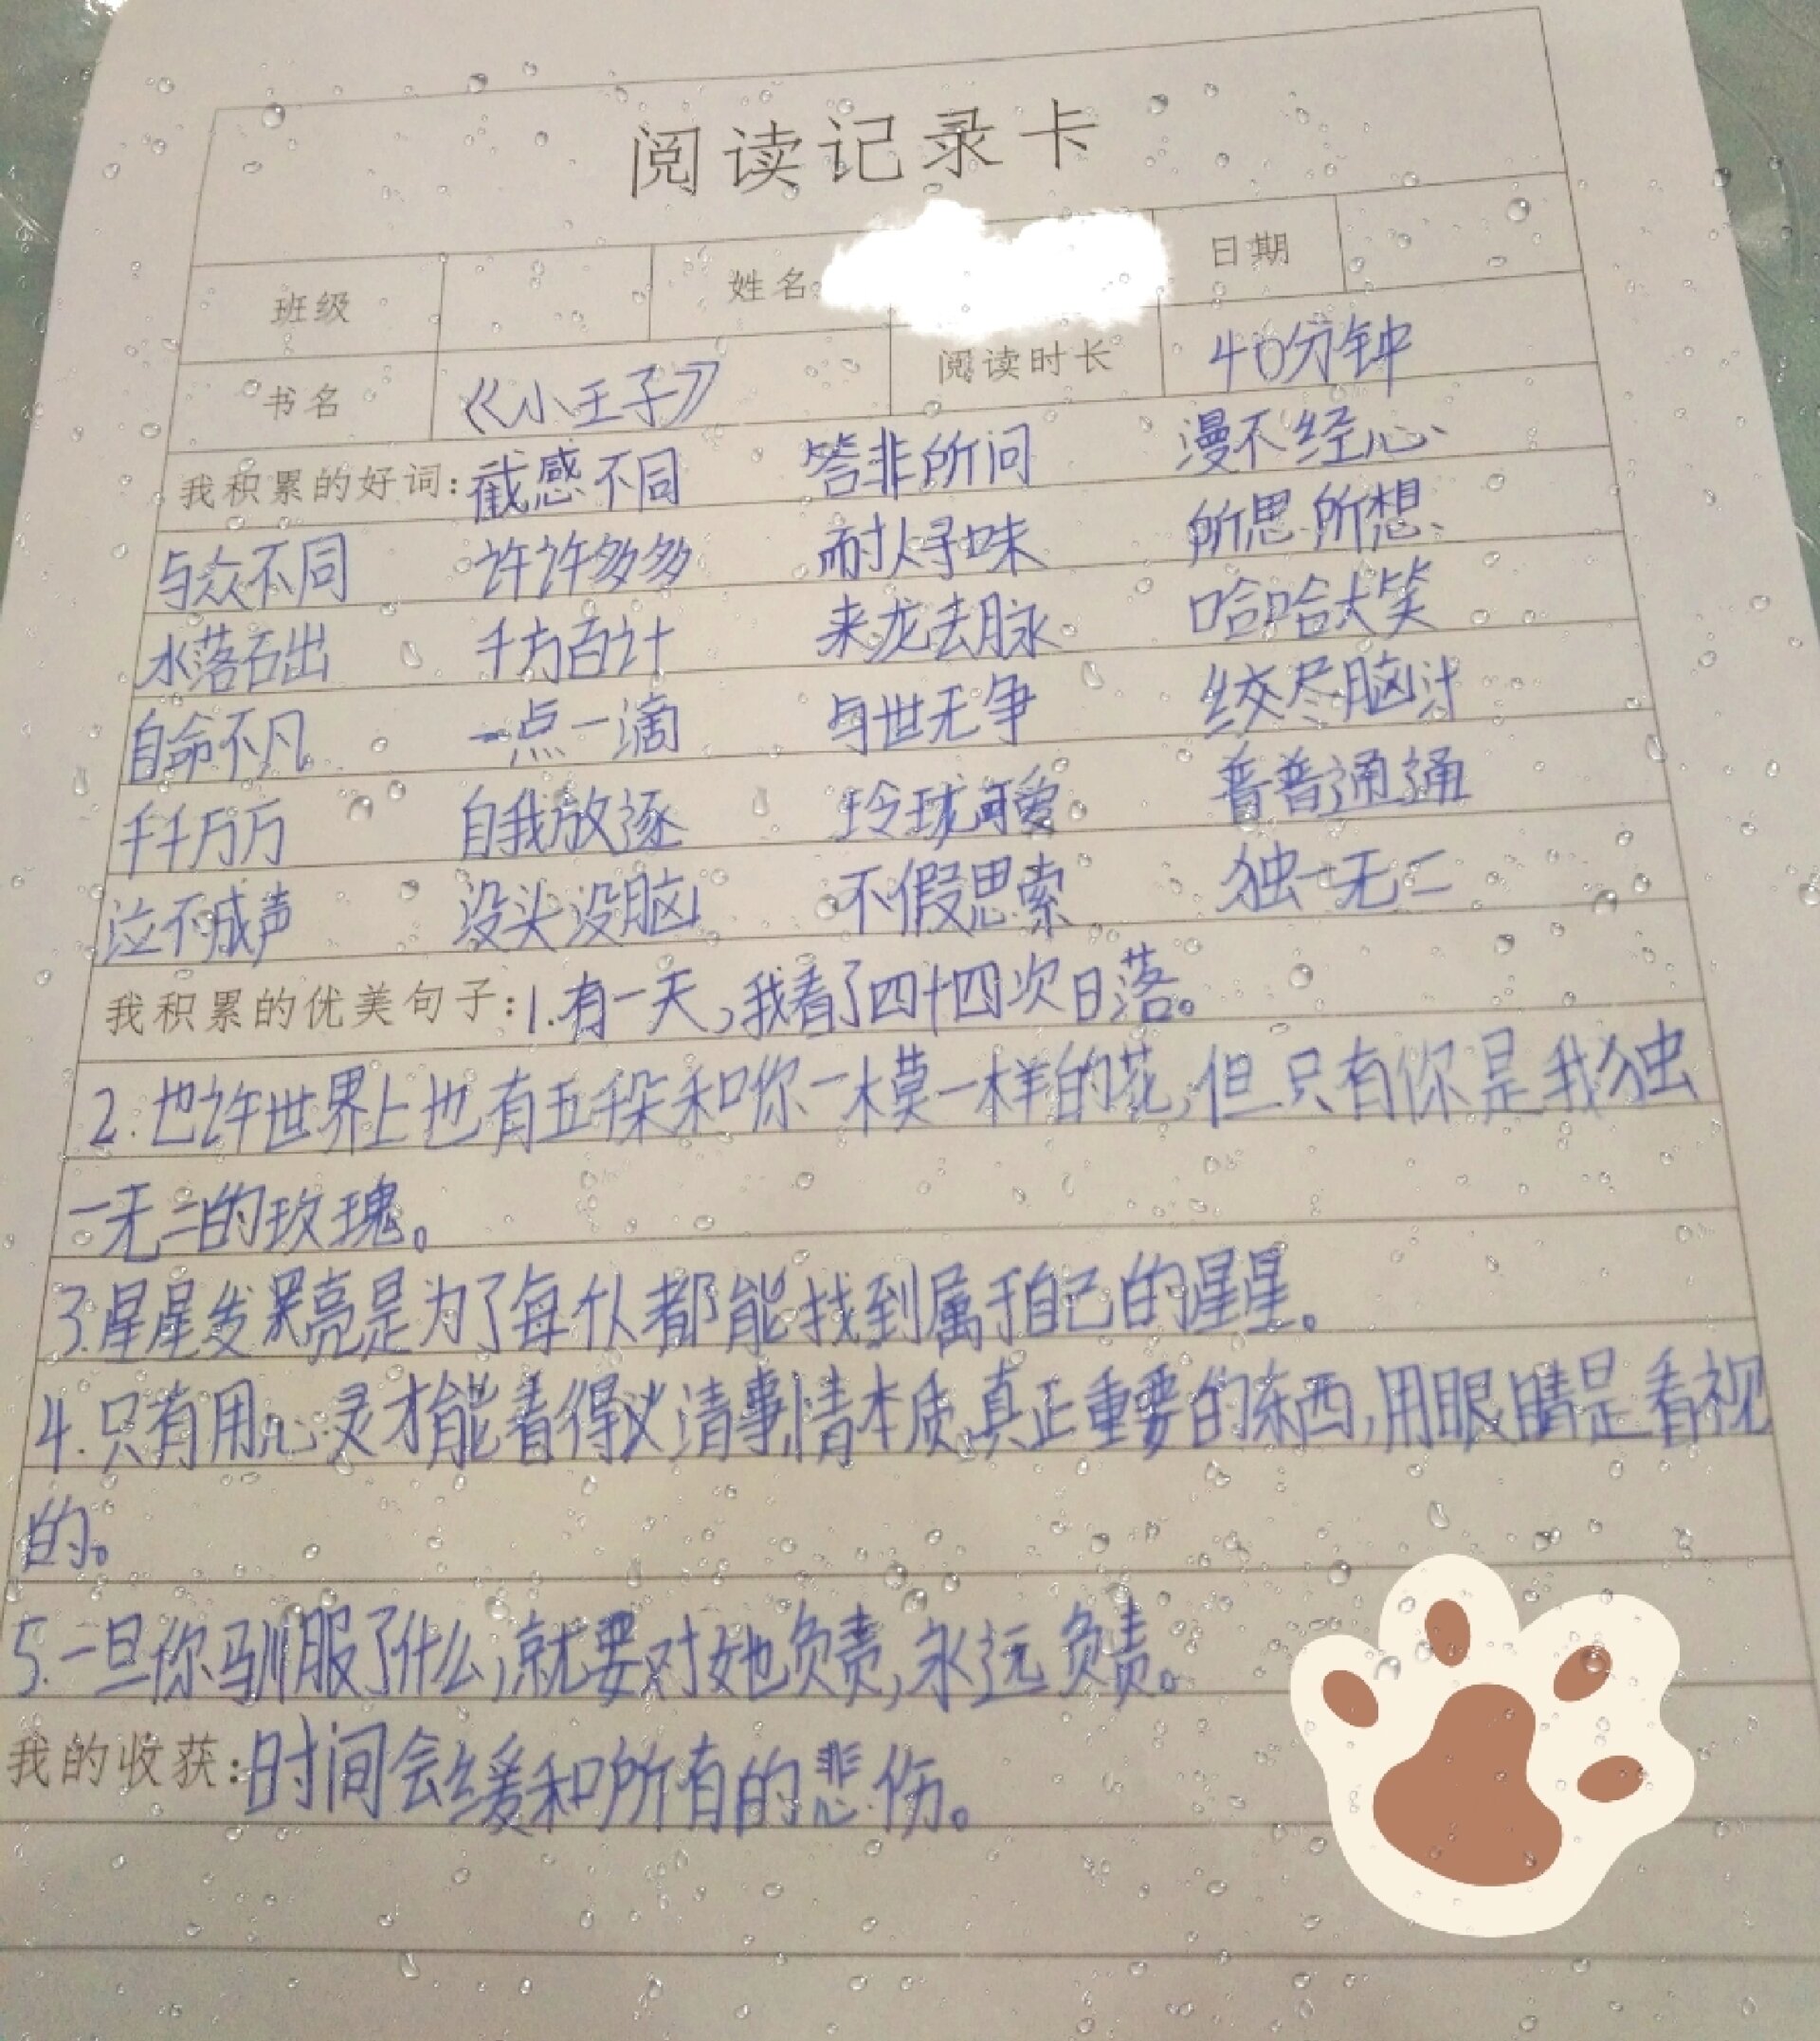 阅读记录卡
班级 姓名 日期
书名 《小王子》 阅读时长 40分钟
我积累的好词: 截感不同 答非所问 漫不经心
与众不同 许许多多 耐人寻味 所思所想
水落石出 千方百计 来龙去脉 哈哈大笑
自命不凡 一点一滴 与世无争 绞尽脑汁
千千万万 自我放逐 玲珑可爱 普普通通
泣不成声 没头没脑 不假思索 独一无二
我积累的优美句子: 1.有一天,我看了四十四次日落。
2.也许世界上也有五千朵和你一模一样的花,但只有你是我独
一无二的玫瑰。
3.星星发亮是为了每个人都能找到属于自己的星星。
4.只有用心灵才能看得清事情本质,真正重要的东西,用眼睛是看视
的。
5.一旦你驯服了什么,就要对她负责,永远负责。
我的收获: 时间会缓和所有的悲伤。